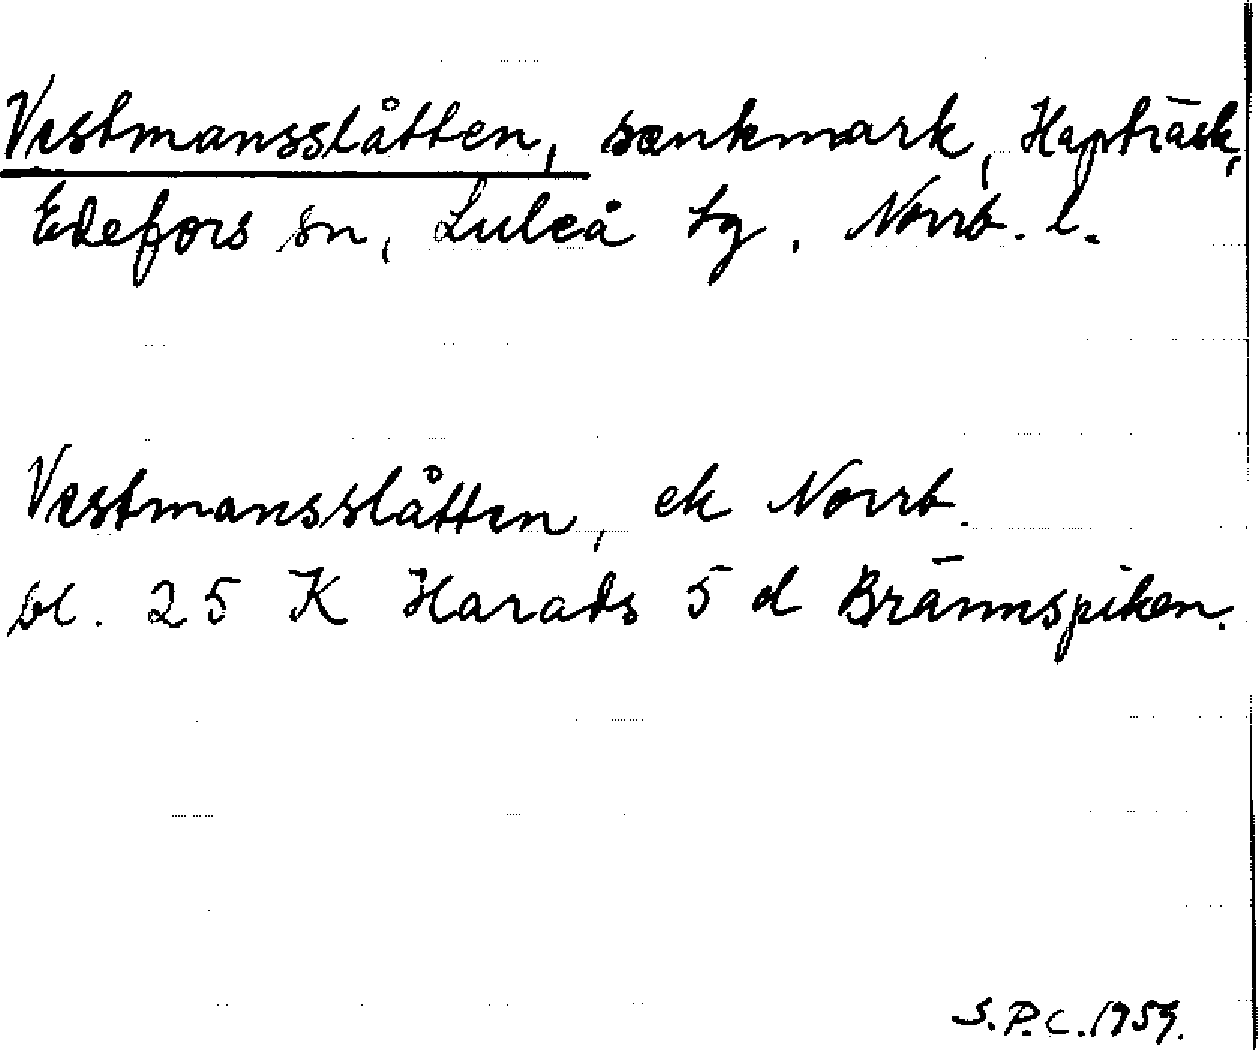 Vestmansslåtten, sankmark, Hapträsk,
Edefors sn, Luleå tg. Norrb. l.
Vestmansslåtten, ek Norrb.
bl. 25 K Harads 5 d Brännspiken.
S.P.C. 1959.